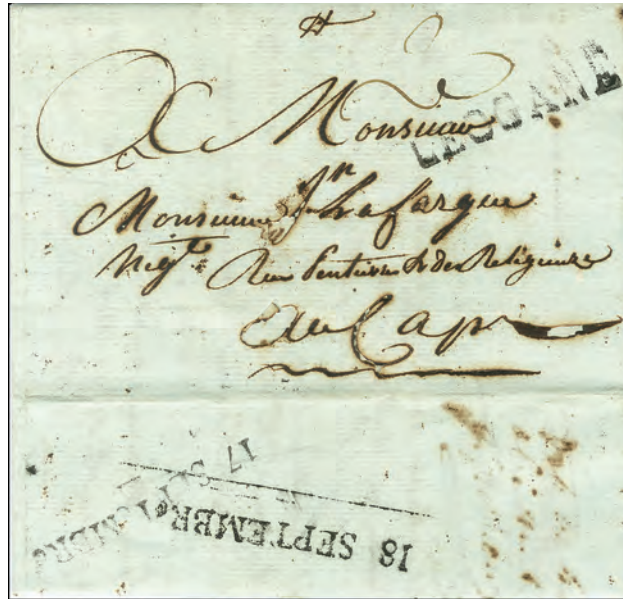 LEOGANE
A Monsieur
Monsieur Jn Lafargue
Negt Rue Penthievre & des Religieuses
Au Cap
17 SEPTEMBRE
18 SEPTEMBRE